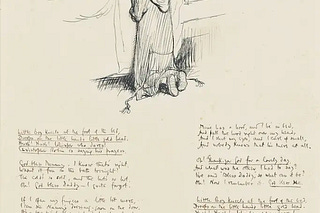 Little Boy kneels at the foot of the bed,
Droops on the little hands little gold head.
Hush! Hush! Whisper who dares!
Christopher Robin is saying his prayers.
God bless Mummy. I know that's right.
Wasn't it fun in the bath tonight?
The cold's so cold, and the hot's so hot.
Oh! God bless Daddy - I quite forgot.
If I open my fingers a little bit more,
I can see Nanny's dressing-gown on the door.
Mine has a hood, and I lie in bed,
And pull the hood right over my head,
And I shut my eyes, and I curl up small,
And nobody knows that I'm there at all.
Oh! Thank you, God, for a lovely day.
And what was the other I had to say?
I said "Bless Daddy," so what can it be?
Oh! Now I remember it. God bless Me.
Little Boy kneels at the foot of the bed,
Droops on the little hands little gold head.